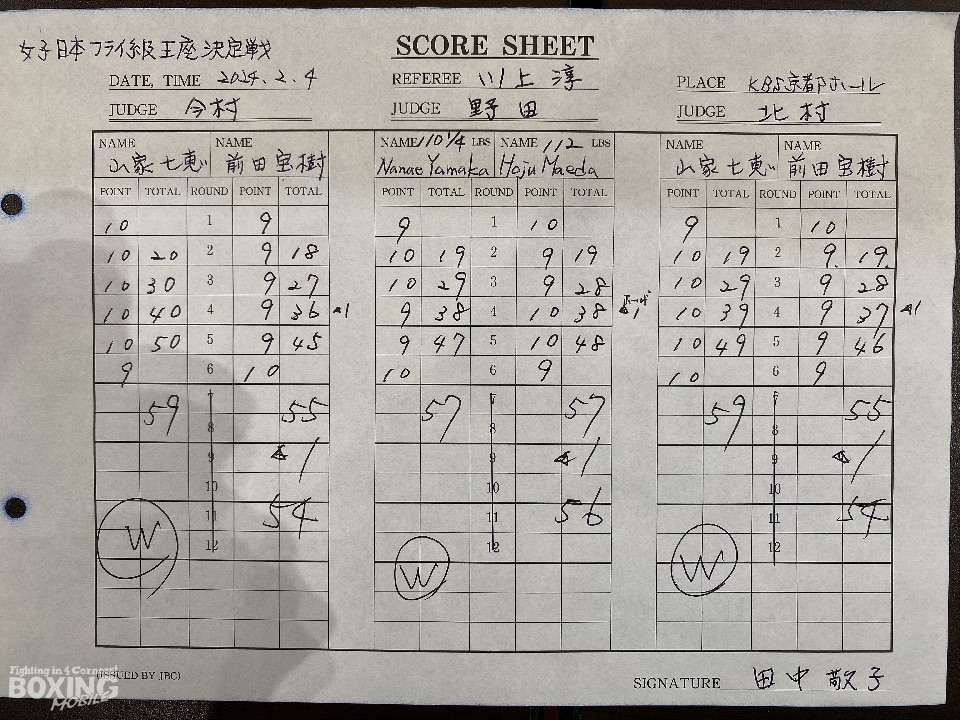 女子日本フライ級王座決定戦
SCORE SHEET
DATE, TIME 2024.2.4 REFEREE 川上 淳 PLACE KBS京都ホール
JUDGE 今村 JUDGE 野田 JUDGE 北村
NAME NAME NAME 110 1/4 LBS NAME 112 LBS NAME NAME
山家七恵 前田宝樹 Nanae Yamaka Hoju Maeda 山家七恵 前田宝樹
POINT TOTAL ROUND POINT TOTAL POINT TOTAL ROUND POINT TOTAL POINT TOTAL ROUND POINT TOTAL
10 1 9 9 1 10 9 1 10
10 20 2 9 18 10 19 2 9 19 10 19 2 9 19
10 30 3 9 27 10 29 3 9 28 10 29 3 9 28
10 40 4 9 36 ▲1 9 38 4 10 38 ▲1 10 39 4 9 37 ▲1
10 50 5 9 45 9 47 5 10 48 10 49 5 9 46
9 6 10 10 6 9 10 6 9
59 7 55 57 7 57 59 7 55
8 8 8
9 ▲1 9 ▲1 9 ▲1
10 10 10
W 11 54 11 56 11 54
12 W 12 W 12
(ISSUED BY JBC) SIGNATURE 田中 敬子
Fighting in 4 Corners!
BOXING
MOBILE